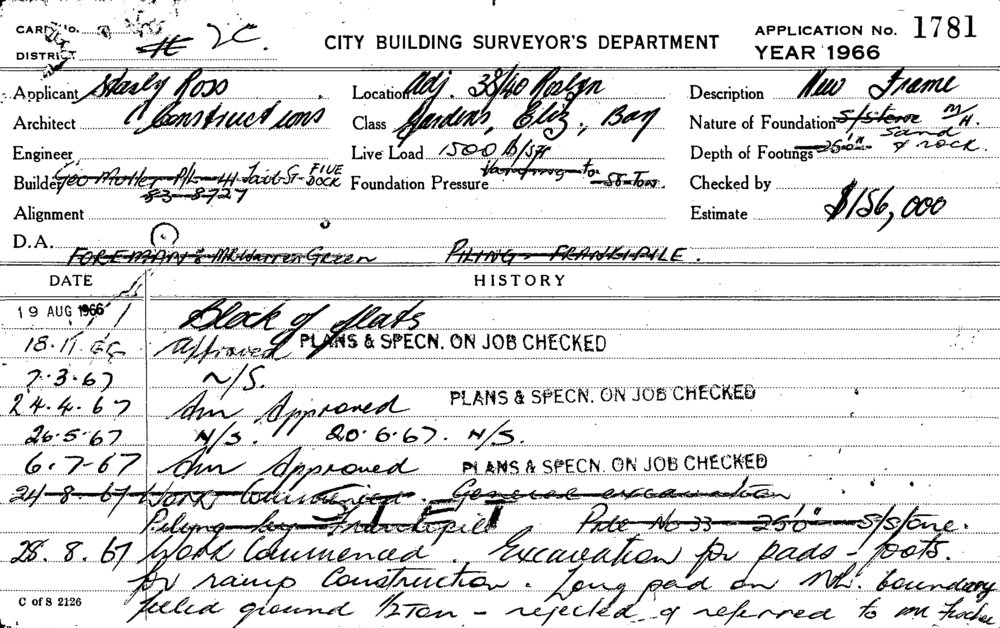 CARD No.
DISTRICT 2C. CITY BUILDING SURVEYOR'S DEPARTMENT APPLICATION No. 1781
YEAR 1966
Applicant Stanley Ross Location Adj. 38/40 Roslyn Description New Frame
Architect Constructions Class Gardens, Eliz. Bay Nature of Foundation S/stone M/H. Sand & rock.
Engineer Live Load 1500 lb/sq Depth of Footings 25'0"
Builder Geo Molter P/L - 41 Tait St - FIVE DOCK Foundation Pressure
83-8727 Checked by
Alignment Estimate $156,000
D.A.
FOREMAN: MR Warren Green PILING - FRANKIPILE.
DATE HISTORY
19 AUG 1966 Block of flats
18.11.66 Approved PLANS & SPECN. ON JOB CHECKED
7.3.67 N/S.
24.4.67 Am Approved PLANS & SPECN. ON JOB CHECKED
26.5.67 N/S. 20.6.67. N/S.
6.7-67 Am Approved PLANS & SPECN. ON JOB CHECKED
24-8-67 Work Commenced. General excavation
Piling by Frankipile Pile No 33 - 25'0" S/stone.
28.8.67 Work Commenced. Excavation for pads - foots.
for ramp Construction. Long pad on Nth. boundary
C of S 2126 filled ground 1/2 Ton - rejected & referred to Mr